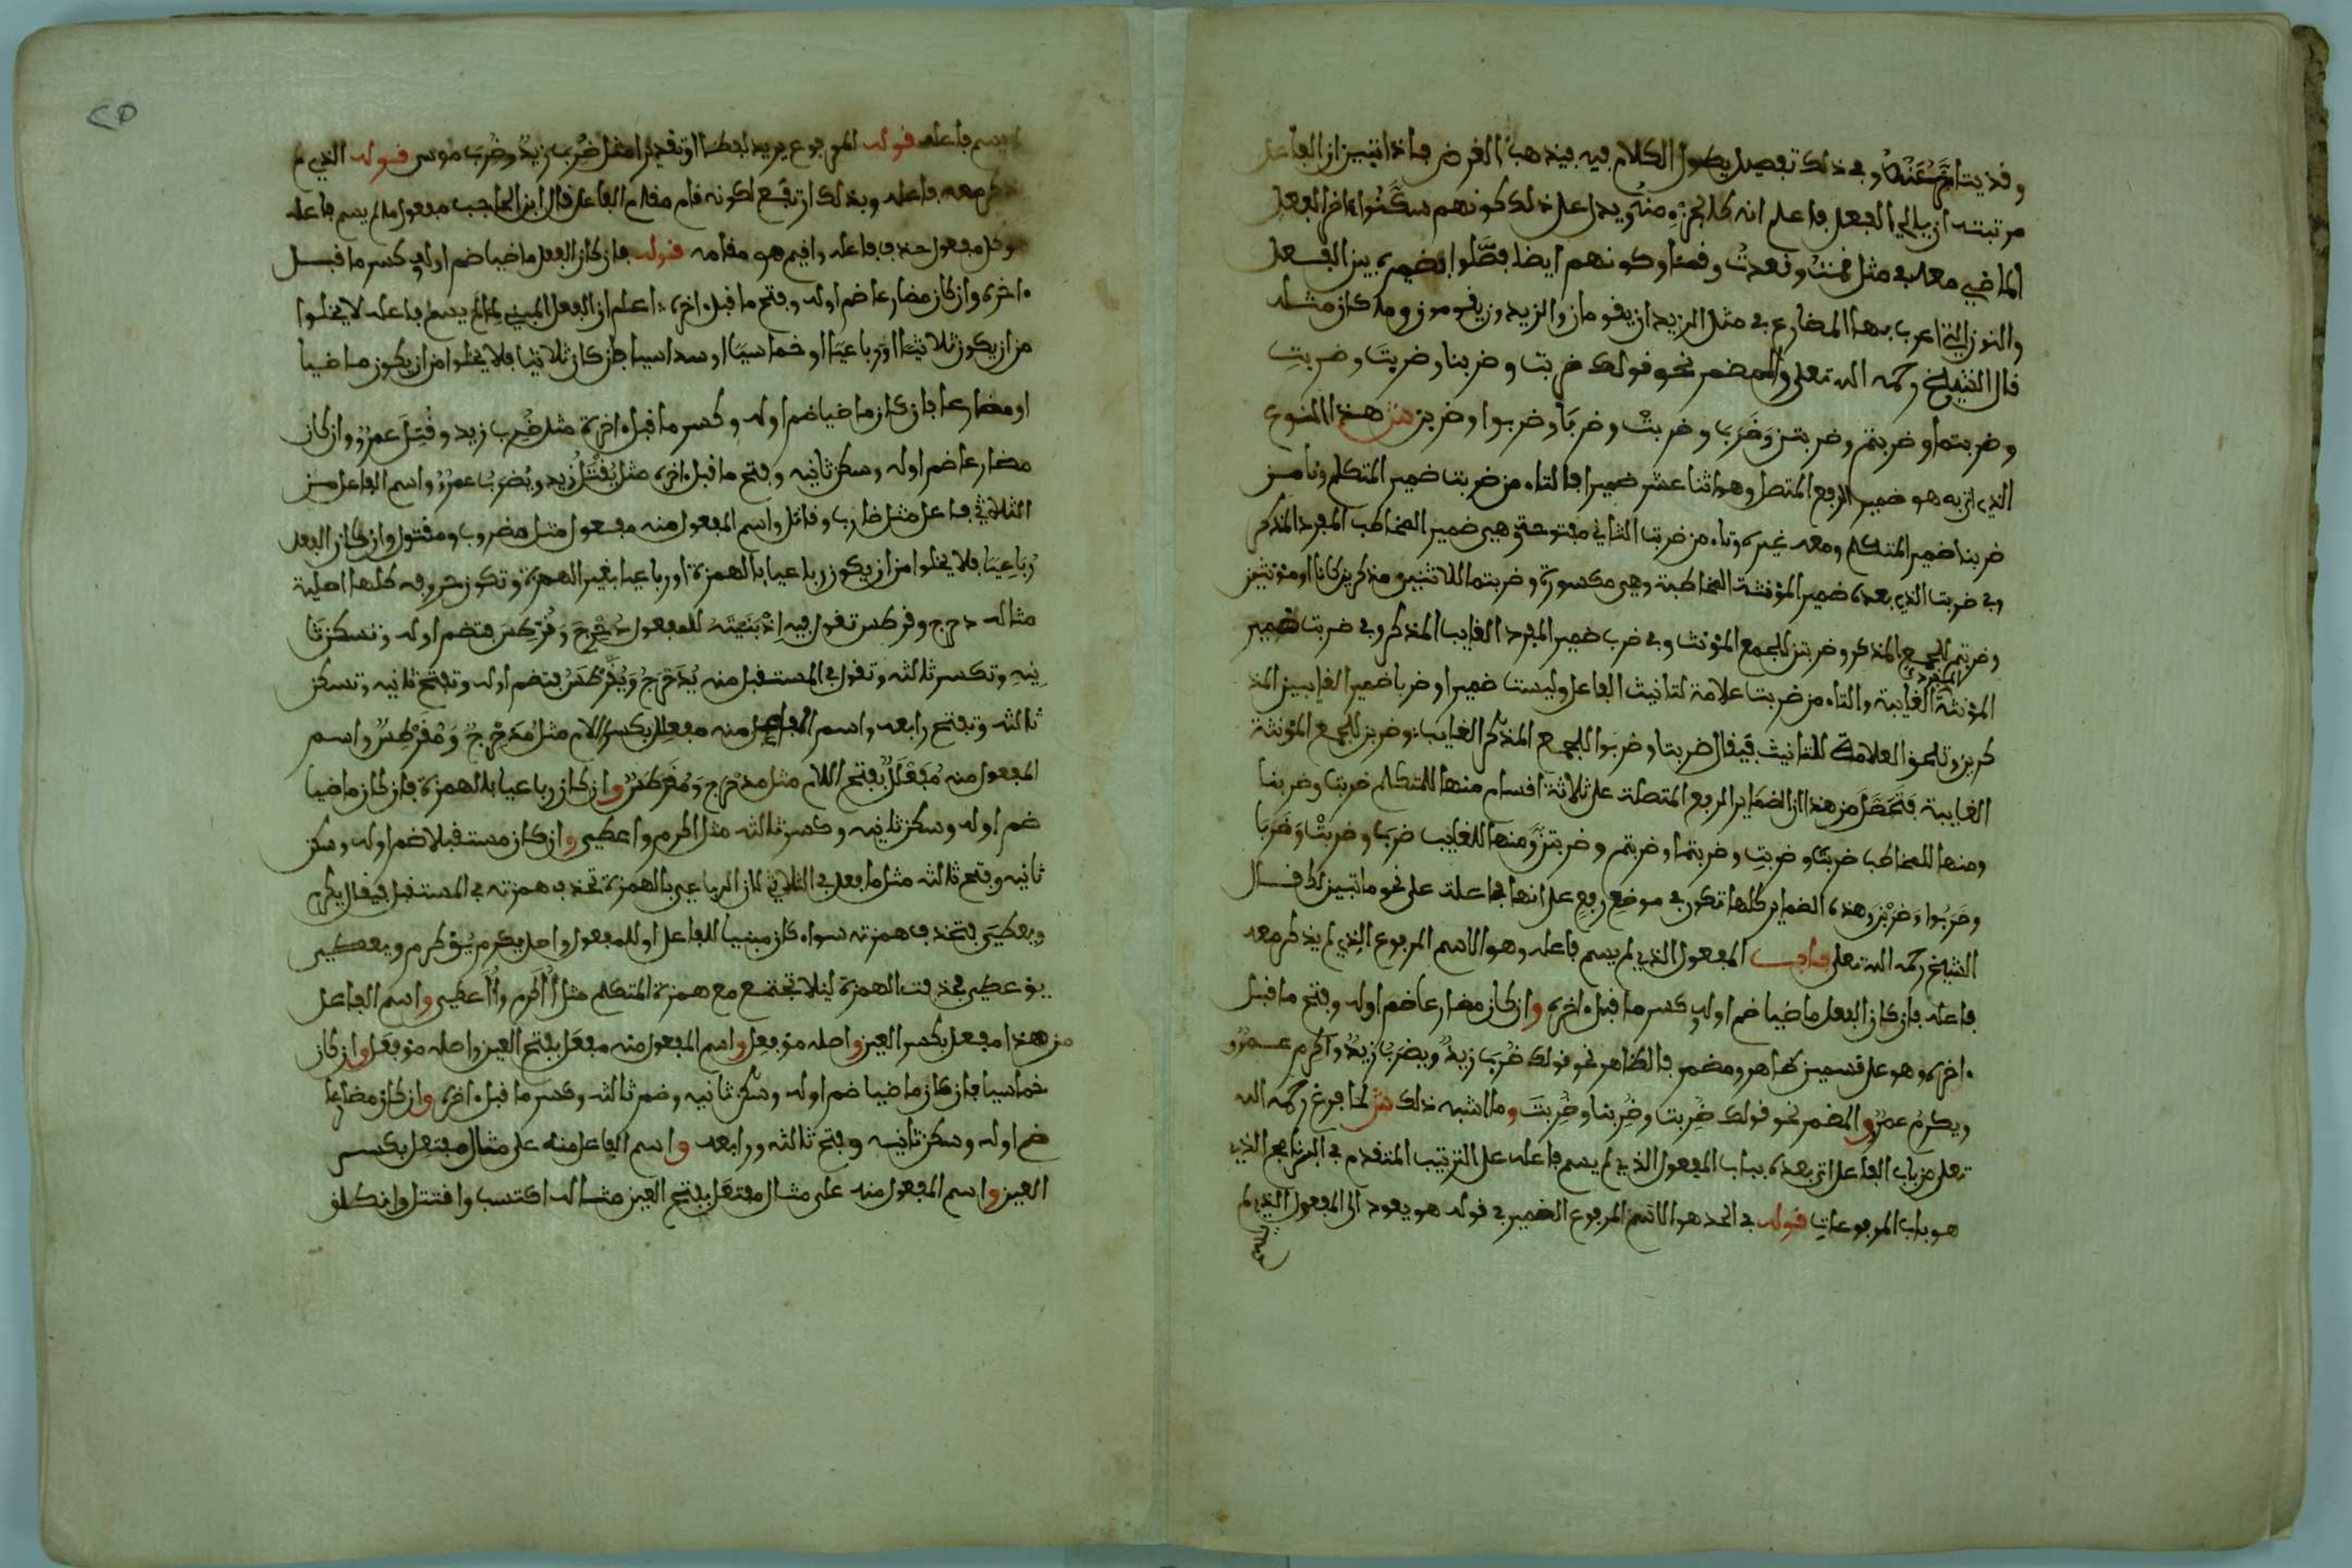 وقد يتاخر عنه وفي ذلك تفصيل يطول الكلام فيه فيذهب الغرض فاذا تبين ان الفاعل
مرتبته ان يلي الفعل فاعلم انه كالجزء منه ويدل على ذلك كونهم سكنوا ءاخر الفعل
الماضي معه في مثل قمت وقعدت وقمنا وكونهم ايضا فصلوا بضميره بين الفعل
والنون التي اعرب بها المضارع في مثل الزيدان يقومان والزيدون يقومون وما كان مثله
قال الشيخ رحمه الله تعلى والمضمر نحو قولك ضربت وضربنا وضربتَ وضربتِ
وضربتما وضربتم وضربتن وَضَرَبَ وضربتْ وضربَا وضربوا وضربن ش هذا النوع
الذي اتى به هو ضمير الرفع المتصل وهو اثنا عشر ضميرا فالتاء من ضربت ضمير المتكلم ونا من
ضربنا ضمير المتكلم ومعه غيره وتاء من ضربت الثاني مفتوحة هي ضمير المخاطب المفرد المذكر
وفي ضربت الذي بعده ضمير المؤنثة المخاطبة وهي مكسورة وضربتما للاثنين مذكرين كانا او مؤنثين
وضربتم للجمع المذكر وضربتن للجمع المؤنث وفي ضرب ضمير المفرد الغايب المذكر وفي ضربت ضمير
المفردة
المؤنثة الغايبة والتاء من ضربت علامة لتانيث الفاعل وليست ضميرا وضربا ضمير الغايبين المذ
كرين وتلحق العلامة للتانيث فيقال ضربتا وضربوا للجمع المذكر الغايب وضربن للجمع المؤنثة
الغايبة فَتَحَصَّلَ من هذا ان الضماير المرفع المتصلة على ثلاثة اقسام منها للمتكلم ضربت وضربنا
ومنها للمخاطب ضربتَ وضربتِ وضربتما وضربتم وضربتن وَمنها للغايب ضربَ وضربَتْ وَضَرَبَا
وضَرَبُوا وَضَرَبْنَ وهذه الضماير كلها تكون في موضع رفع على انها فاعلة على نحو ما تبين قال
الشيخ رحمه الله تعلى باب المفعول الذي لم يسم فاعله وهو الاسم المرفوع الذي لم يذكر معه
فاعله فان كان الفعل ماضيا ضم اوله وكسر ما قبل ءاخره وان كان مضارعا ضم اوله وفتح ما قبل
ءاخره وهو على قسمين ظاهر ومضمر فالظاهر نحو قولك ضُرِبَ زيدٌ ويضرَبُ زيدٌ واكرِم عمرٌو
ويكرَمُ عمرٌو والمضمر نحو قولك ضُرِبت وضُرِبنا وضُرِبتَ وما اشبه ذلك ش لما فرغ رحمه الله
تعلى من باب الفاعل اتى بعده بباب المفعول الذي لم يسم فاعله على الترتيب المتقدم في البرنامج الذي
هو باب المرفوعات قوله في الحد هو الاسم المرفوع الضمير في قوله هو يعود الى المفعول الذي لم
يسم فاعله قوله المرفوع يريد لفظا او تقديرا مثل ضُرِبَ زيدٌ وضُرِبَ موسى قوله الذي لم
يذكر معه فاعله وبذلك ارتفع لكونه قام مقام الفاعل قال ابن الحاجب مفعول ما لم يسم فاعله
هو كل مفعول حذف فاعله واقيم هو مقامه قوله فان كان الفعل ماضيا ضم اوله وكسر ما قبل
ءاخره وان كان مضارعا ضم اوله وفتح ما قبل ءاخره اعلم ان الفعل المبني لما لم يسم فاعله لا يخلوا
من ان يكون ثلاثيا او رباعيا او خماسيا او سداسيا فان كان ثلاثيا فلا يخلوا من ان يكون ماضيا
او مضارعا فان كان ماضيا ضم اوله وكسر ما قبل ءاخره مثل ضُرِب زيد وقُتِلَ عمرٌو وان كان
مضارعا ضم اوله وسكن ثانيه وفتح ما قبل ءاخره مثل يُقْتَلُ زيد ويُضرَبُ عمرٌو واسم الفاعل من
الثلاثي فاعل مثل ضارب وقاتل واسم المفعول منه مفعول مثل مضروب ومقتول وان كان الفعل
رُبَاعِيًا فلا يخلوا من ان يكون رباعيا بالهمزة او رباعيا بغير الهمزة وتكون حروفه كلها اصلية
مثاله دحرج وقرطس تقول فيه اذا بَنَيْتَهُ للمفعول دُحْرِجَ وَقُرْطِسَ فتضم اوله وتسكن ثا
نِيهِ وتكسر ثالثه وتقول في المستقبل منه يُدَحْرَجُ وَيُقَرْطَسُ فتضم اوله وتفتح ثانيه وتسكن
ثالثه وتفتح رابعه واسم الفاعل منه مفعلِل بكسر اللام مثل مُدَحْرِجٌ وَمُقَرْطِسٌ واسم
المفعول منه مُفَعْلَلٌ بفتح اللام مثل مدحْرَج وَمُقَرطَسٌ وان كان رباعيا بالهمزة فان كان ماضيا
ضم اوله وسكن ثانيه وكسر ثالثه مثل اكرم واعطي وان كان مستقبلا ضم اوله وسكن
ثانيه وفتح ثالثه مثل ما فعل في الثلاثي لان الرباعي بالهمزة تحذف همزته في المستقبل فيقال يكرم
ويعطي فتحذف همزته سواء كان مبنيا للفاعل او للمفعول واصل يكرم يُؤكرم ويعطي
يؤعطي فحذفت الهمزة ليلا تجتمع مع همزة المتكلم مثل أُأَكرم وأُأَعطي واسم الفاعل
من هذا مفعل بكسر العين واصله مؤفعِل واسم المفعول منه مفعَل بفتح العين واصله مؤفعَل وان كان
خماسيا فان كان ماضيا ضم اوله وسكن ثانيه وضم ثالثه وكسر ما قبل ءاخره وان كان مضارعا
ضم اوله وسكن ثانيه وفتح ثالثه ورابعه واسم الفاعل منه على مثال مفتعِل بكسر
العين واسم المفعول منه على مثال مفتعَل بفتح العين مثاله اكتسب واقتتل وانطلق
٢٥